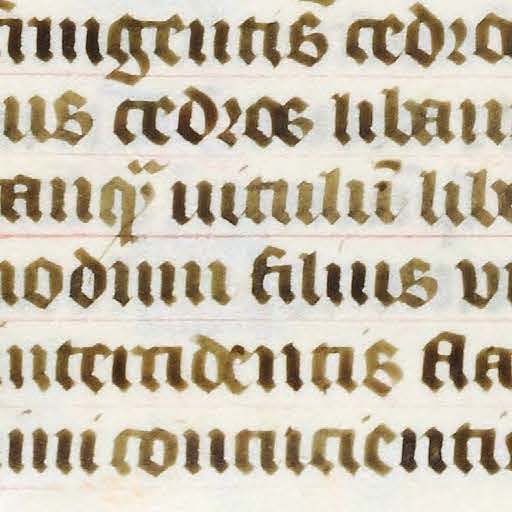 fringentis cedro
us cedros liban
anq̃ uitulū lib
modum filius vn
intercidentis fla
ini concutienti